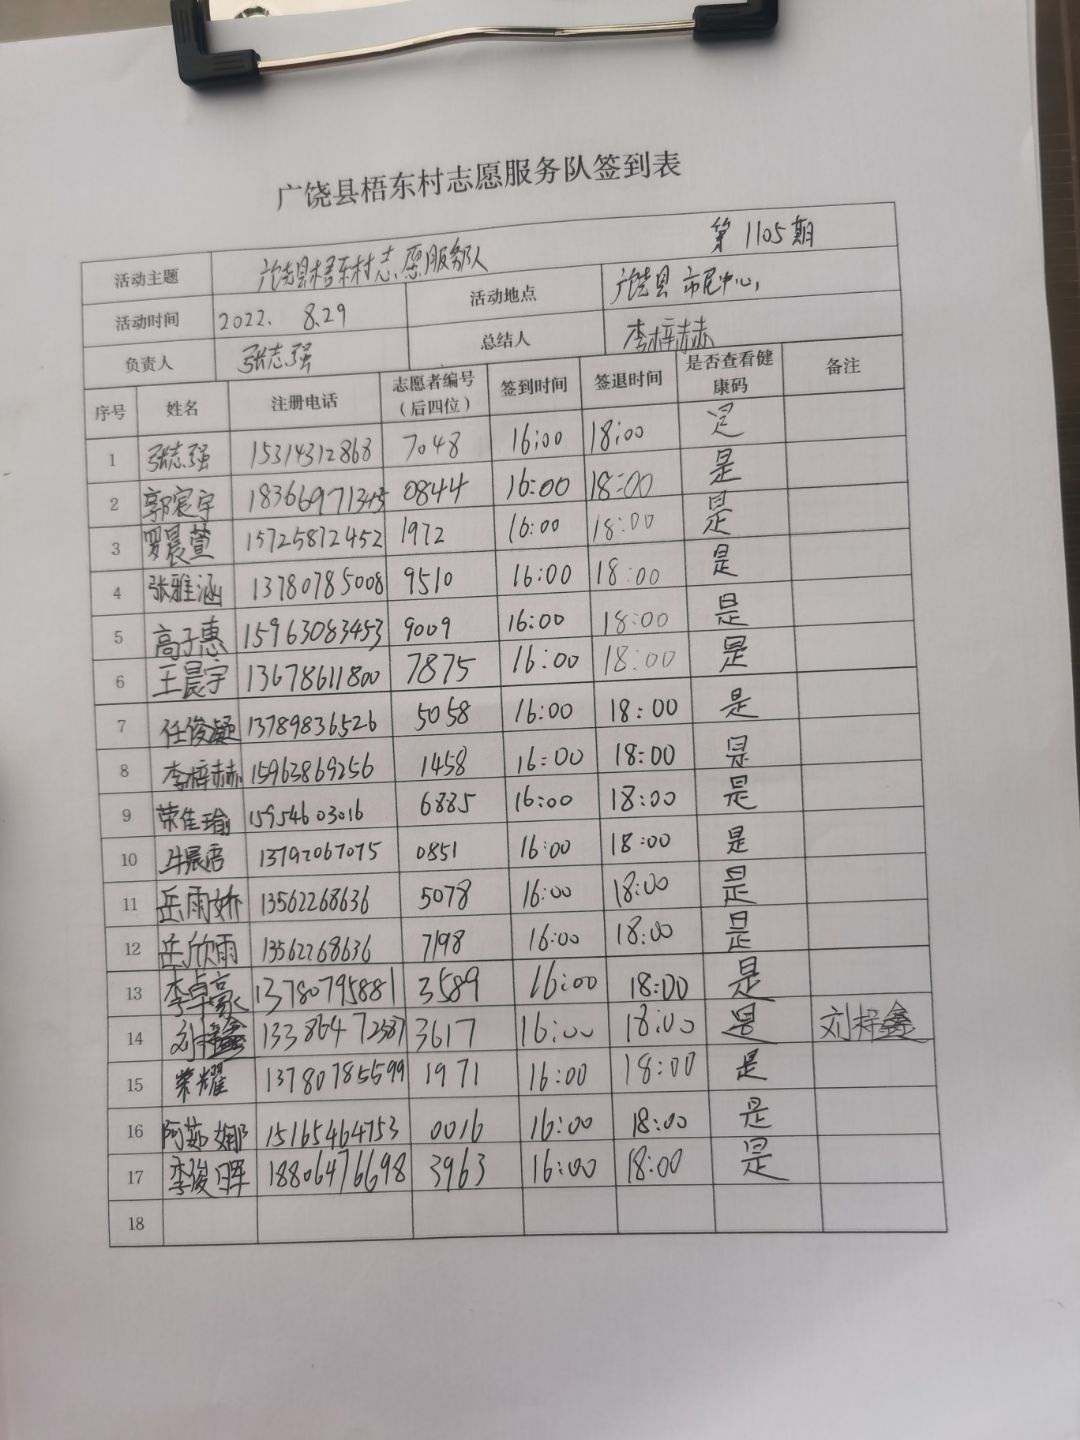 广饶县梧东村志愿服务队签到表
活动主题 广饶县梧东村志愿服务队 第1105期
活动时间 2022. 8.29 活动地点 广饶县市民中心
负责人 张志强 总结人 李梓赫
序号 姓名 注册电话 志愿者编号（后四位） 签到时间 签退时间 是否查看健康码 备注
1 张志强 15314312868 7048 16:00 18:00 是
2 郭宸宇 0844 16:00 18:00 是
3 罗晨萱 15725872452 1972 16:00 18:00 是
4 张雅涵 13780785008 9510 16:00 18:00 是
5 高子惠 15963083453 9009 16:00 18:00 是
6 王晨宇 13678611800 7875 16:00 18:00 是
7 任俊凝 13789836526 5058 16:00 18:00 是
8 李梓赫 15963869256 1458 16:00 18:00 是
9 荣佳瑜 15954603016 6885 16:00 18:00 是
10 13792067075 0851 16:00 18:00 是
11 岳雨娇 13562268636 5078 16:00 18:00 是
12 岳欣雨 13562268636 7198 16:00 18:00 是
13 李卓豪 13780795881 3589 16:00 18:00 是
14 刘梓鑫 3617 16:00 18:00 是 刘梓鑫
15 荣耀 13780785599 1971 16:00 18:00 是
16 阿茹娜 15165464753 0016 16:00 18:00 是
17 李俊晖 18806476698 3963 16:00 18:00 是
18